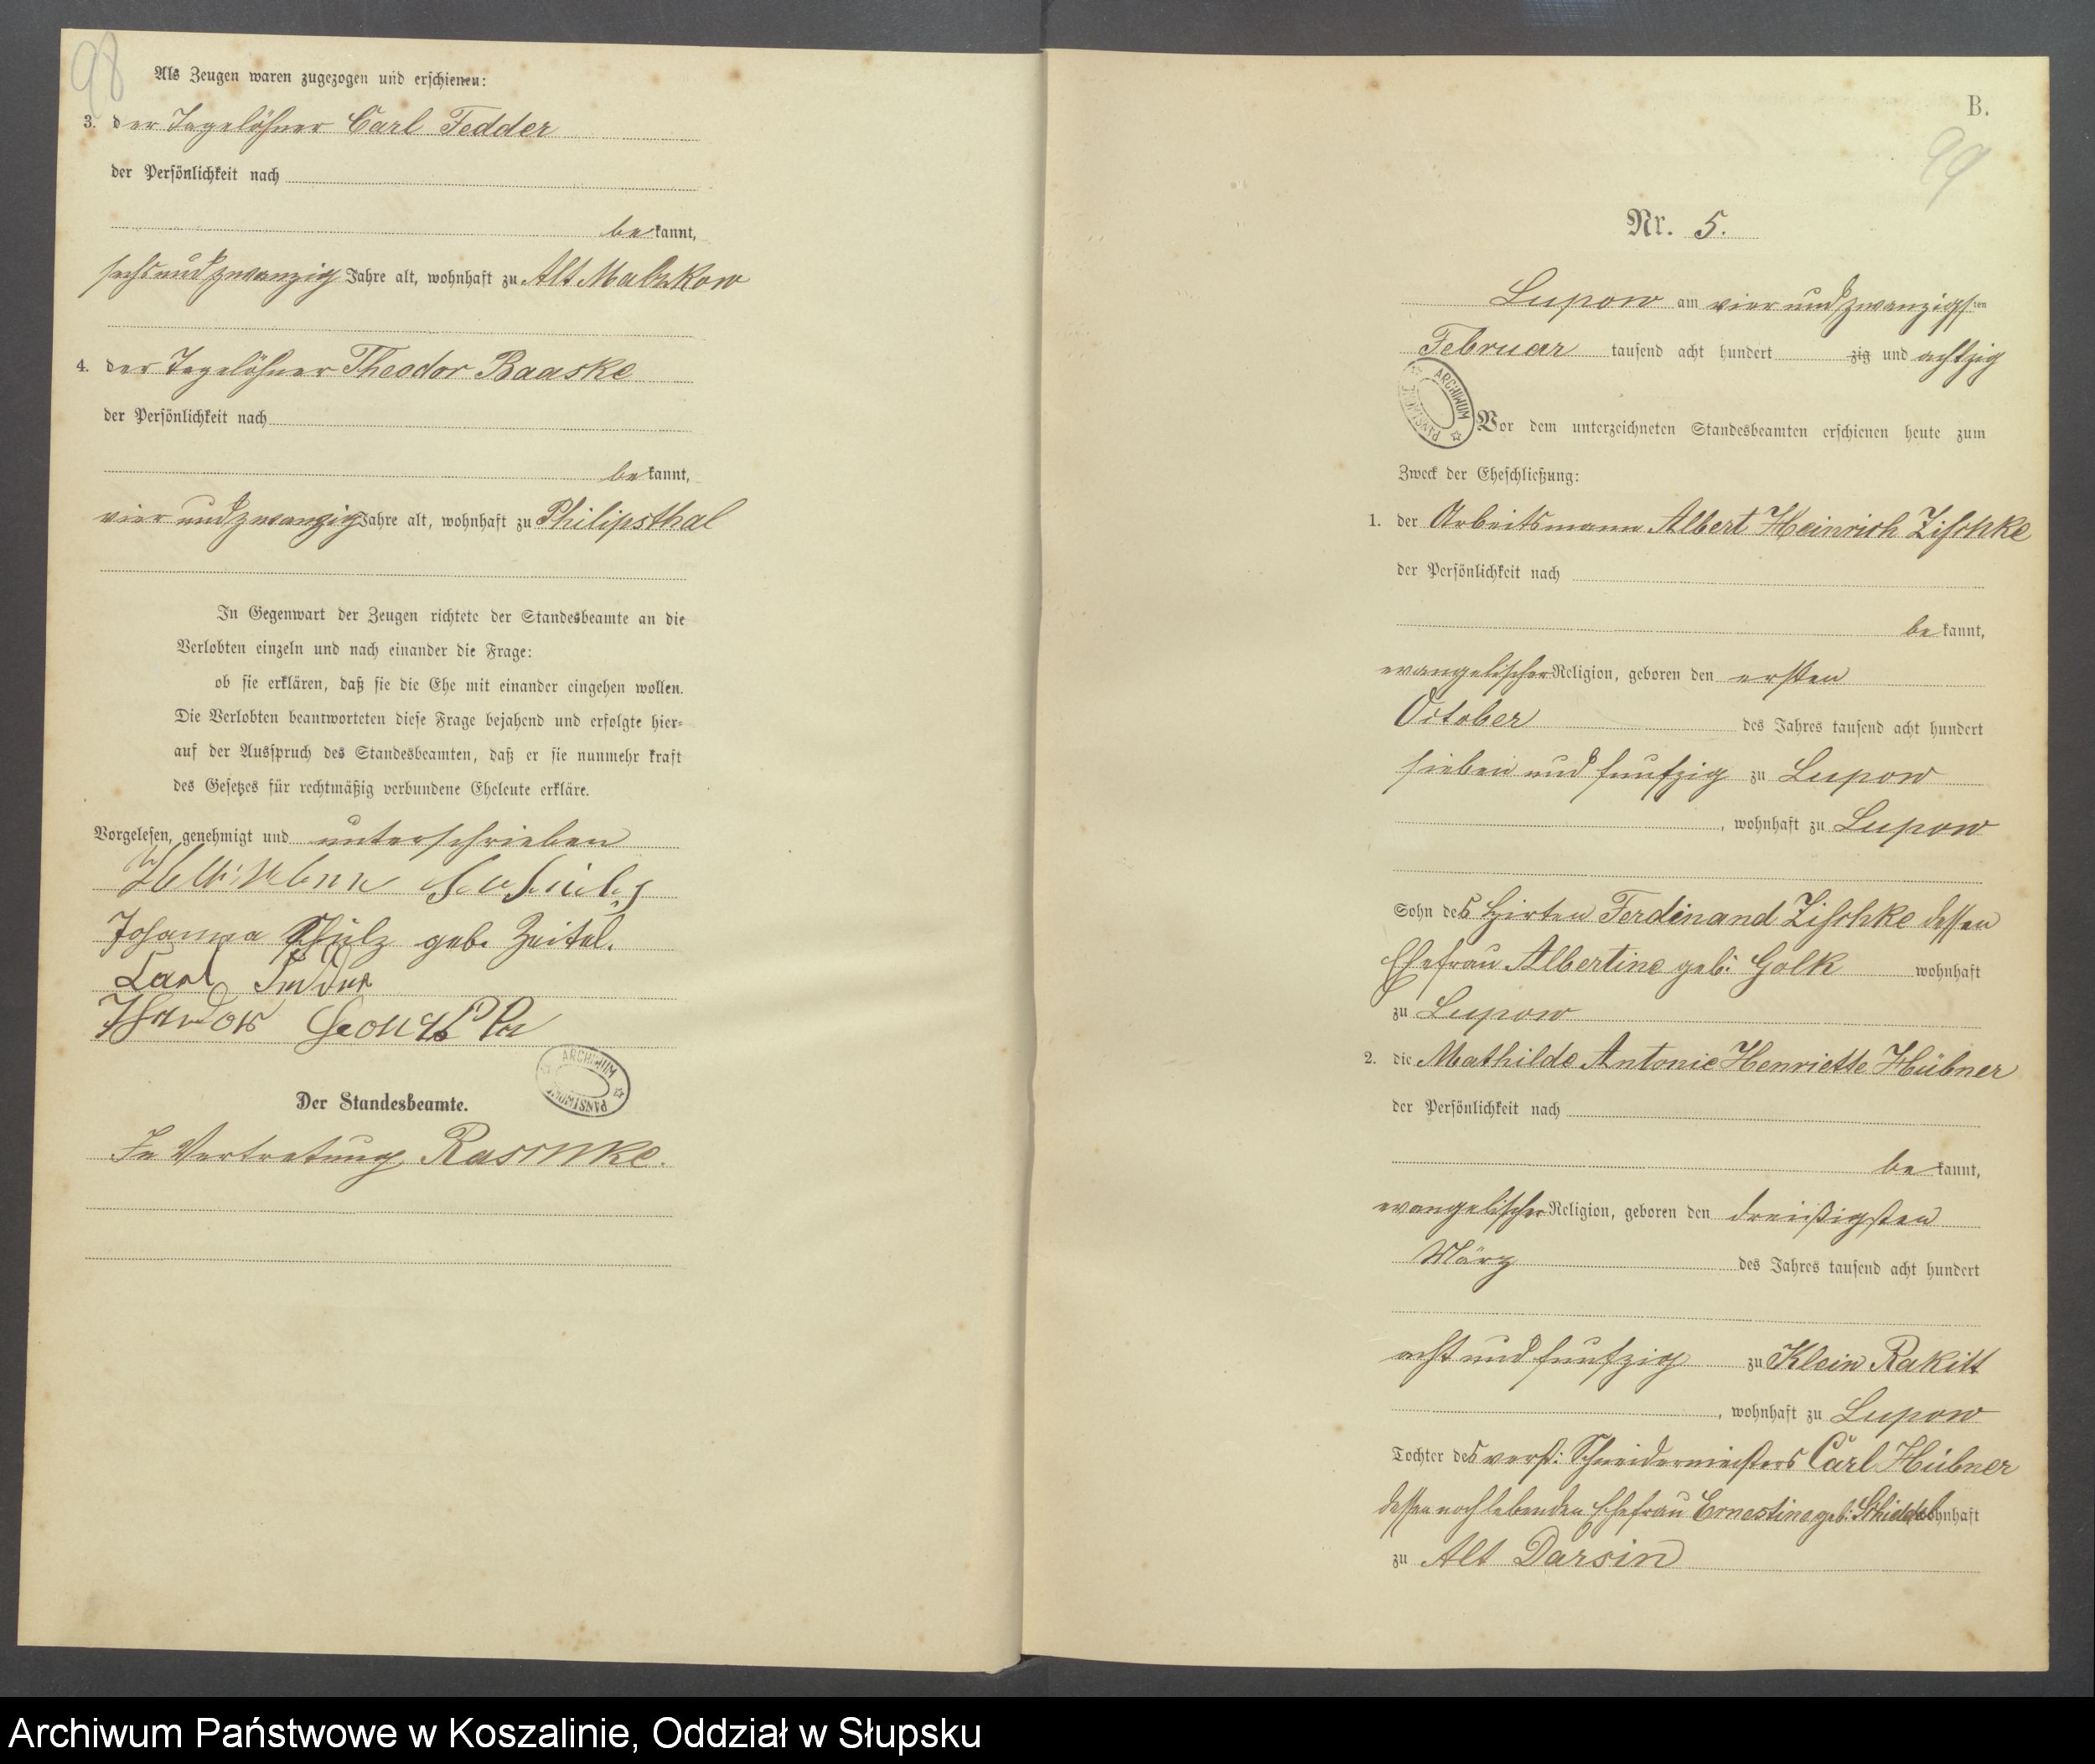 98
Als Zeugen waren zugezogen und erschienen:
3. der Tagelöhner Carl Fedder
der Persönlichkeit nach
bekannt,
sechsundzwanzig Jahre alt, wohnhaft zu Alt Malzkow
4. der Tagelöhner Theodor Baaske
der Persönlichkeit nach
bekannt,
vier und zwanzig Jahre alt, wohnhaft zu Philipsthal
In Gegenwart der Zeugen richtete der Standesbeamte an die
Verlobten einzeln und nach einander die Frage:
ob sie erklären, daß sie die Ehe mit einander eingehen wollen.
Die Verlobten beantworteten diese Frage bejahend und erfolgte hier-
auf der Ausspruch des Standesbeamten, daß er sie nunmehr kraft
des Gesetzes für rechtmäßig verbundene Eheleute erkläre.
Vorgelesen, genehmigt und unterschrieben
Johanna Schülz geb. Zeitel.
Carl Fedder
Theodor
ARCHIWUM PAŃSTWOWE
Der Standesbeamte.
In Vertretung Raschke.
B.
99
Nr. 5.
Lupow am vier und zwanzigsten
Februar tausend acht hundert zig und achtzig
ARCHIWUM PAŃSTWOWE
Vor dem unterzeichneten Standesbeamten erschienen heute zum
Zweck der Eheschließung:
1. der Arbeitsmann Albert Heinrich Zischke
der Persönlichkeit nach
bekannt,
evangelischer Religion, geboren den ersten
October des Jahres tausend acht hundert
sieben und funfzig zu Lupow
, wohnhaft zu Lupow
Sohn des Hirten Ferdinand Zischke dessen
Ehefrau Albertine geb: Golk wohnhaft
zu Lupow
2. die Mathilde Antonie Henriette Hübner
der Persönlichkeit nach
bekannt,
evangelischer Religion, geboren den dreißigsten
März des Jahres tausend acht hundert
acht und funfzig zu Klein Rakitt
, wohnhaft zu Lupow
Tochter des verst: Schneidermeisters Carl Hübner
dessen noch lebenden Ehefrau Ernestine geb: wohnhaft
zu Alt Darsin
Archiwum Państwowe w Koszalinie, Oddział w Słupsku